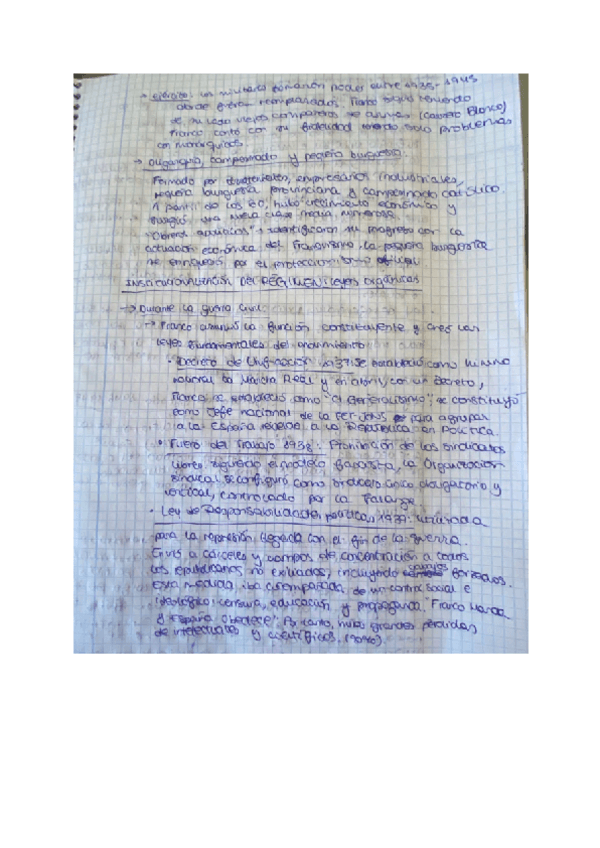 → Ejército: los militares tomaron poder entre 1939-1945
donde fueron recompensados. Franco siguió teniendo
de su lado viejos compañeros de (Carrero Blanco)
Franco contó con su fidelidad solo problemas
con monárquicos.
→ Oligarquía, campesinado y pequeña burguesía.
Formado por terratenientes, empresarios industriales,
pequeña burguesía provinciana y campesinado católico.
A partir de los 60, hubo crecimiento económico y
surgió una nueva clase media, numerosa.
"Obreros identificaron su progreso con la
actuación económica del franquismo. La pequeña burguesía
se enriqueció por el proteccionismo oficial
INSTITUCIONALIZACIÓN DEL RÉGIMEN: Leyes orgánicas
→ Durante la guerra civil:
→ Franco asumió la función constituyente y creó las
leyes fundamentales del movimiento
• Decreto de Unificación 1937: Se estableció como
nacional la y en abril, con un decreto,
Franco se estableció como "el generalísimo", se constituyó
como Jefe nacional de la FET-JONS para agrupar
a la España rebelde a la República en Política
• Fuero del Trabajo 1938: Prohibición de los sindicatos
libres siguiendo el modelo fascista, la Organización
sindical se configuró como sindicato único obligatorio y
vertical, controlado por la Falange
• Ley de Responsabilidades políticas, 1939: Utilizada
para la represión, llegada con el fin de la guerra.
Envió a cárceles y campos de concentración a todos
los republicanos no exiliados, incluyendo campos forzados.
Esta medida iba acompañada de un control social e
ideológico: censura, educación y propaganda. "Franco manda
y España obedece". Por tanto, hubo grandes pérdidas
de intelectuales y científicos.